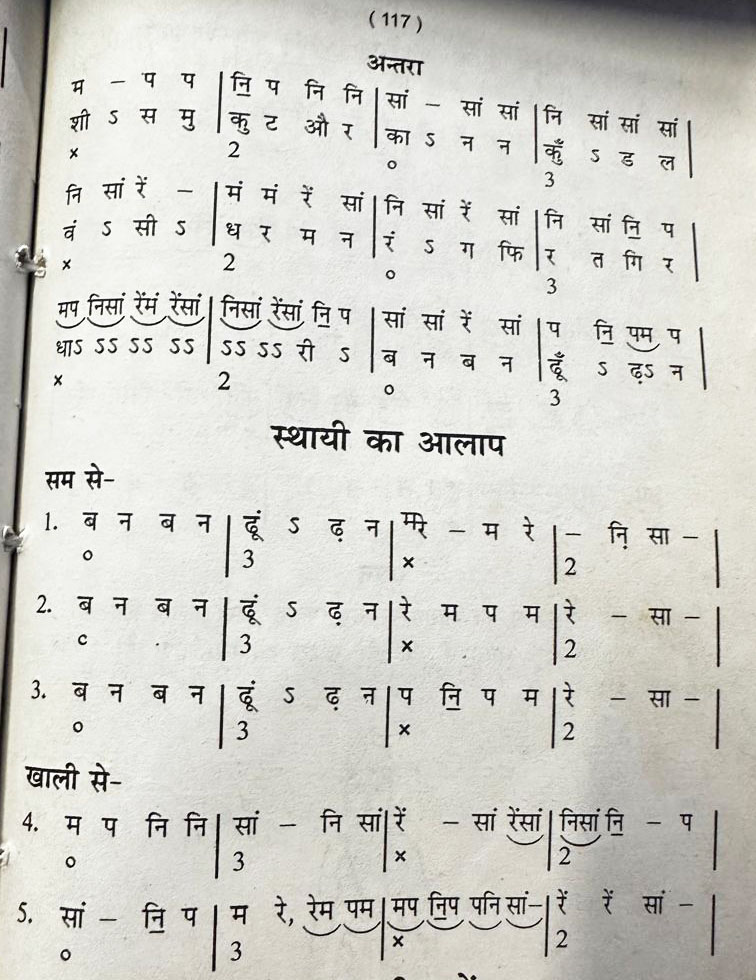 ( 117 )
अन्तरा
म – प प | नि॒ प नि नि | सां – सां सां | नि सां सां सां |
शी ऽ स मु | कु ट औ र | का ऽ न न | कुँ ऽ ड ल |
× 2 ० 3
नि सां रें – | मं मं रें सां | नि सां रें सां | नि सां नि॒ प |
वं ऽ सी ऽ | ध र म न | रं ऽ ग फि | र त गि र |
× 2 ० 3
मप निसां रेंमं रेंसां | निसां रेंसां नि॒ प | सां सां रें सां | प नि॒ पम प |
धाऽ ऽऽ ऽऽ ऽऽ | ऽऽ ऽऽ री ऽ | ब न ब न | ढूँ ऽ ढ़ऽ न |
× 2 ० 3
स्थायी का आलाप
सम से–
1. ब न ब न | ढूं ऽ ढ़ न | मरे – म रे | – नि़ सा – |
० 3 × 2
2. ब न ब न | ढूं ऽ ढ़ न | रे म प म | रे – सा – |
c 3 × 2
3. ब न ब न | ढूं ऽ ढ़ न | प नि॒ प म | रे – सा – |
० 3 × 2
खाली से–
4. म प नि नि | सां – नि सां | रें – सां रेंसां | निसां नि॒ – प |
० 3 × 2
5. सां – नि॒ प | म रे, रेम पम | मप नि॒प पनि सां– | रें रें सां – |
० 3 × 2